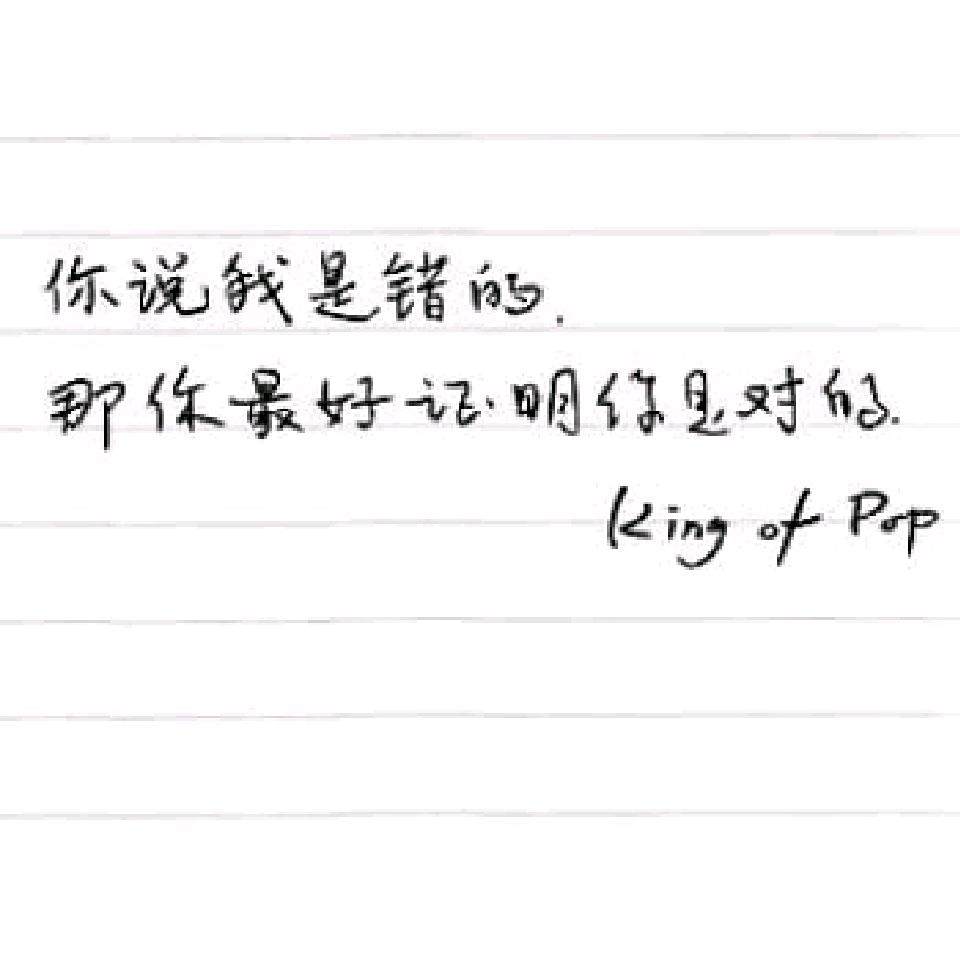 你说我是错的.
那你最好证明你是对的.
King of Pop